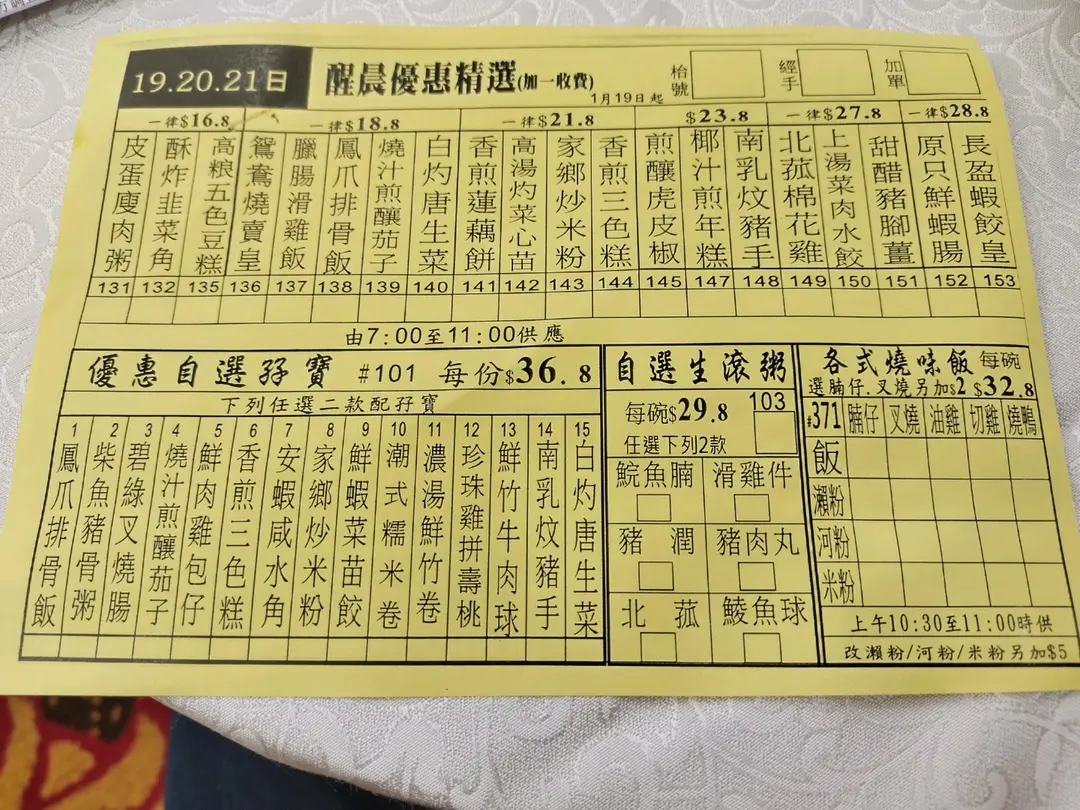 19.20.21日
醒晨優惠精選(加一收費)
1月19日起
枱號
經手
加單
一律$16.8
一律$18.8
一律$21.8
$23.8
一律$27.8
一律$28.8
皮蛋廋肉粥
酥炸韭菜角
高粮五色豆糕
鴛鴦燒賣皇
臘腸滑雞飯
鳳爪排骨飯
燒汁煎釀茄子
白灼唐生菜
香煎蓮藕餅
高湯灼菜心苗
家鄉炒米粉
香煎三色糕
煎釀虎皮椒
椰汁煎年糕
南乳炆豬手
北菰棉花雞
上湯菜肉水餃
甜醋豬腳薑
原只鮮蝦腸
長盈蝦餃皇
131 132 135 136 137 138 139 140 141 142 143 144 145 147 148 149 150 151 152 153
由7:00至11:00供應
優惠自選孖寶 #101 每份$36.8
下列任選二款配孖寶
1 2 3 4 5 6 7 8 9 10 11 12 13 14 15
鳳爪排骨飯
柴魚豬骨粥
碧綠叉燒腸
燒汁煎釀茄子
鮮肉雞包仔
香煎三色糕
安蝦咸水角
家鄉炒米粉
鮮蝦菜苗餃
潮式糯米卷
濃湯鮮竹卷
珍珠雞拼壽桃
鮮竹牛肉球
南乳炆豬手
白灼唐生菜
自選生滾粥
每碗$29.8 103
任選下列2款
鯇魚腩 滑雞件
豬潤 豬肉丸
北菰 鯪魚球
各式燒味飯 每碗
選腩仔.叉燒另加$2 $32.8
#371 腩仔 叉燒 油雞 切雞 燒鴨
飯
瀨粉
河粉
米粉
上午10:30至11:00時供
改瀨粉/河粉/米粉另加$5